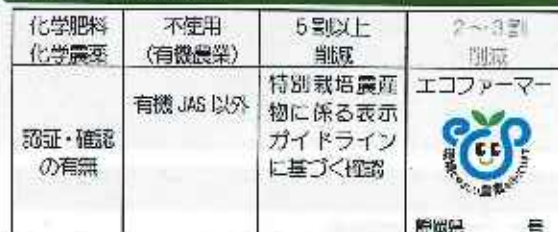 化学肥料
化学農薬
不使用
(有機農業)
5割以上
削減
2～3割
削減
認証・確認
の有無
有機 JAS 以外
特別栽培農産
物に係る表示
ガイドライン
に基づく確認
エコファーマー
静岡県 号